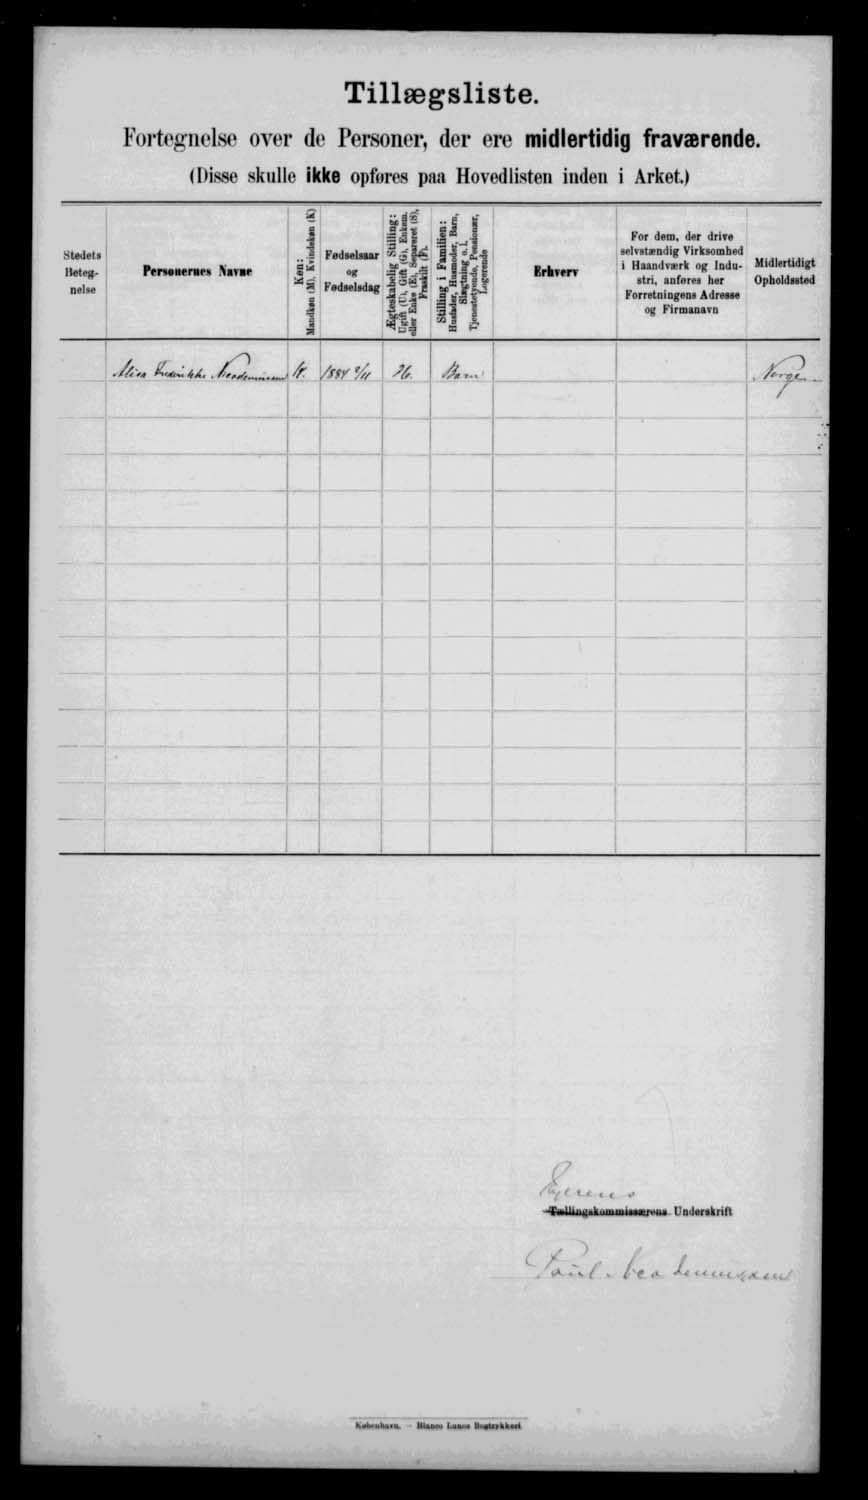 Tillægsliste.
Fortegnelse over de Personer, der ere midlertidig fraværende.
(Disse skulle ikke opføres paa Hovedlisten inden i Arket.)
Stedets
Beteg-
nelse
Personernes Navne
Køn:
Mandkøn (M), Kvindekøn (K)
Fødselsaar
og
Fødselsdag
Ægteskabelig Stilling:
Ugift (U), Gift (G), Enkem.
eller Enke (E), Separeret (S),
Fraskilt (F).
Stilling i Familien:
Husfader, Husmoder, Barn,
Slægtning o. l.
Tjenestetyende, Pensionær,
Logerende
Erhverv
For dem, der drive
selvstændig Virksomhed
i Haandværk og Indu-
stri, anføres her
Forretningens Adresse
og Firmanavn
Midlertidigt
Opholdssted
Frederikke Nicodemussen K. 1884 Barn Norge
Ejerens
Tællingskommissærens Underskrift
Paul Nicodemussen
København. — Bianco Lunos Bogtrykkeri